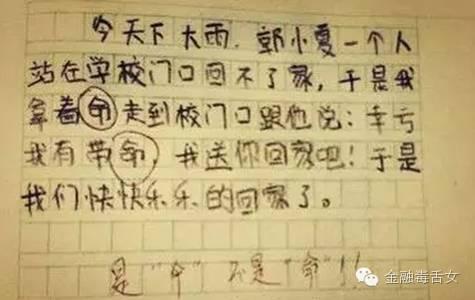 今天下大雨，郭小夏一个人
站在学校门口回不了家，于是我
拿着命走到校门口跟他说：幸亏
我有带命，我送你回家吧！于是
我们快快乐乐的回家了。
是"伞"不是"命"！！
金融毒舌女